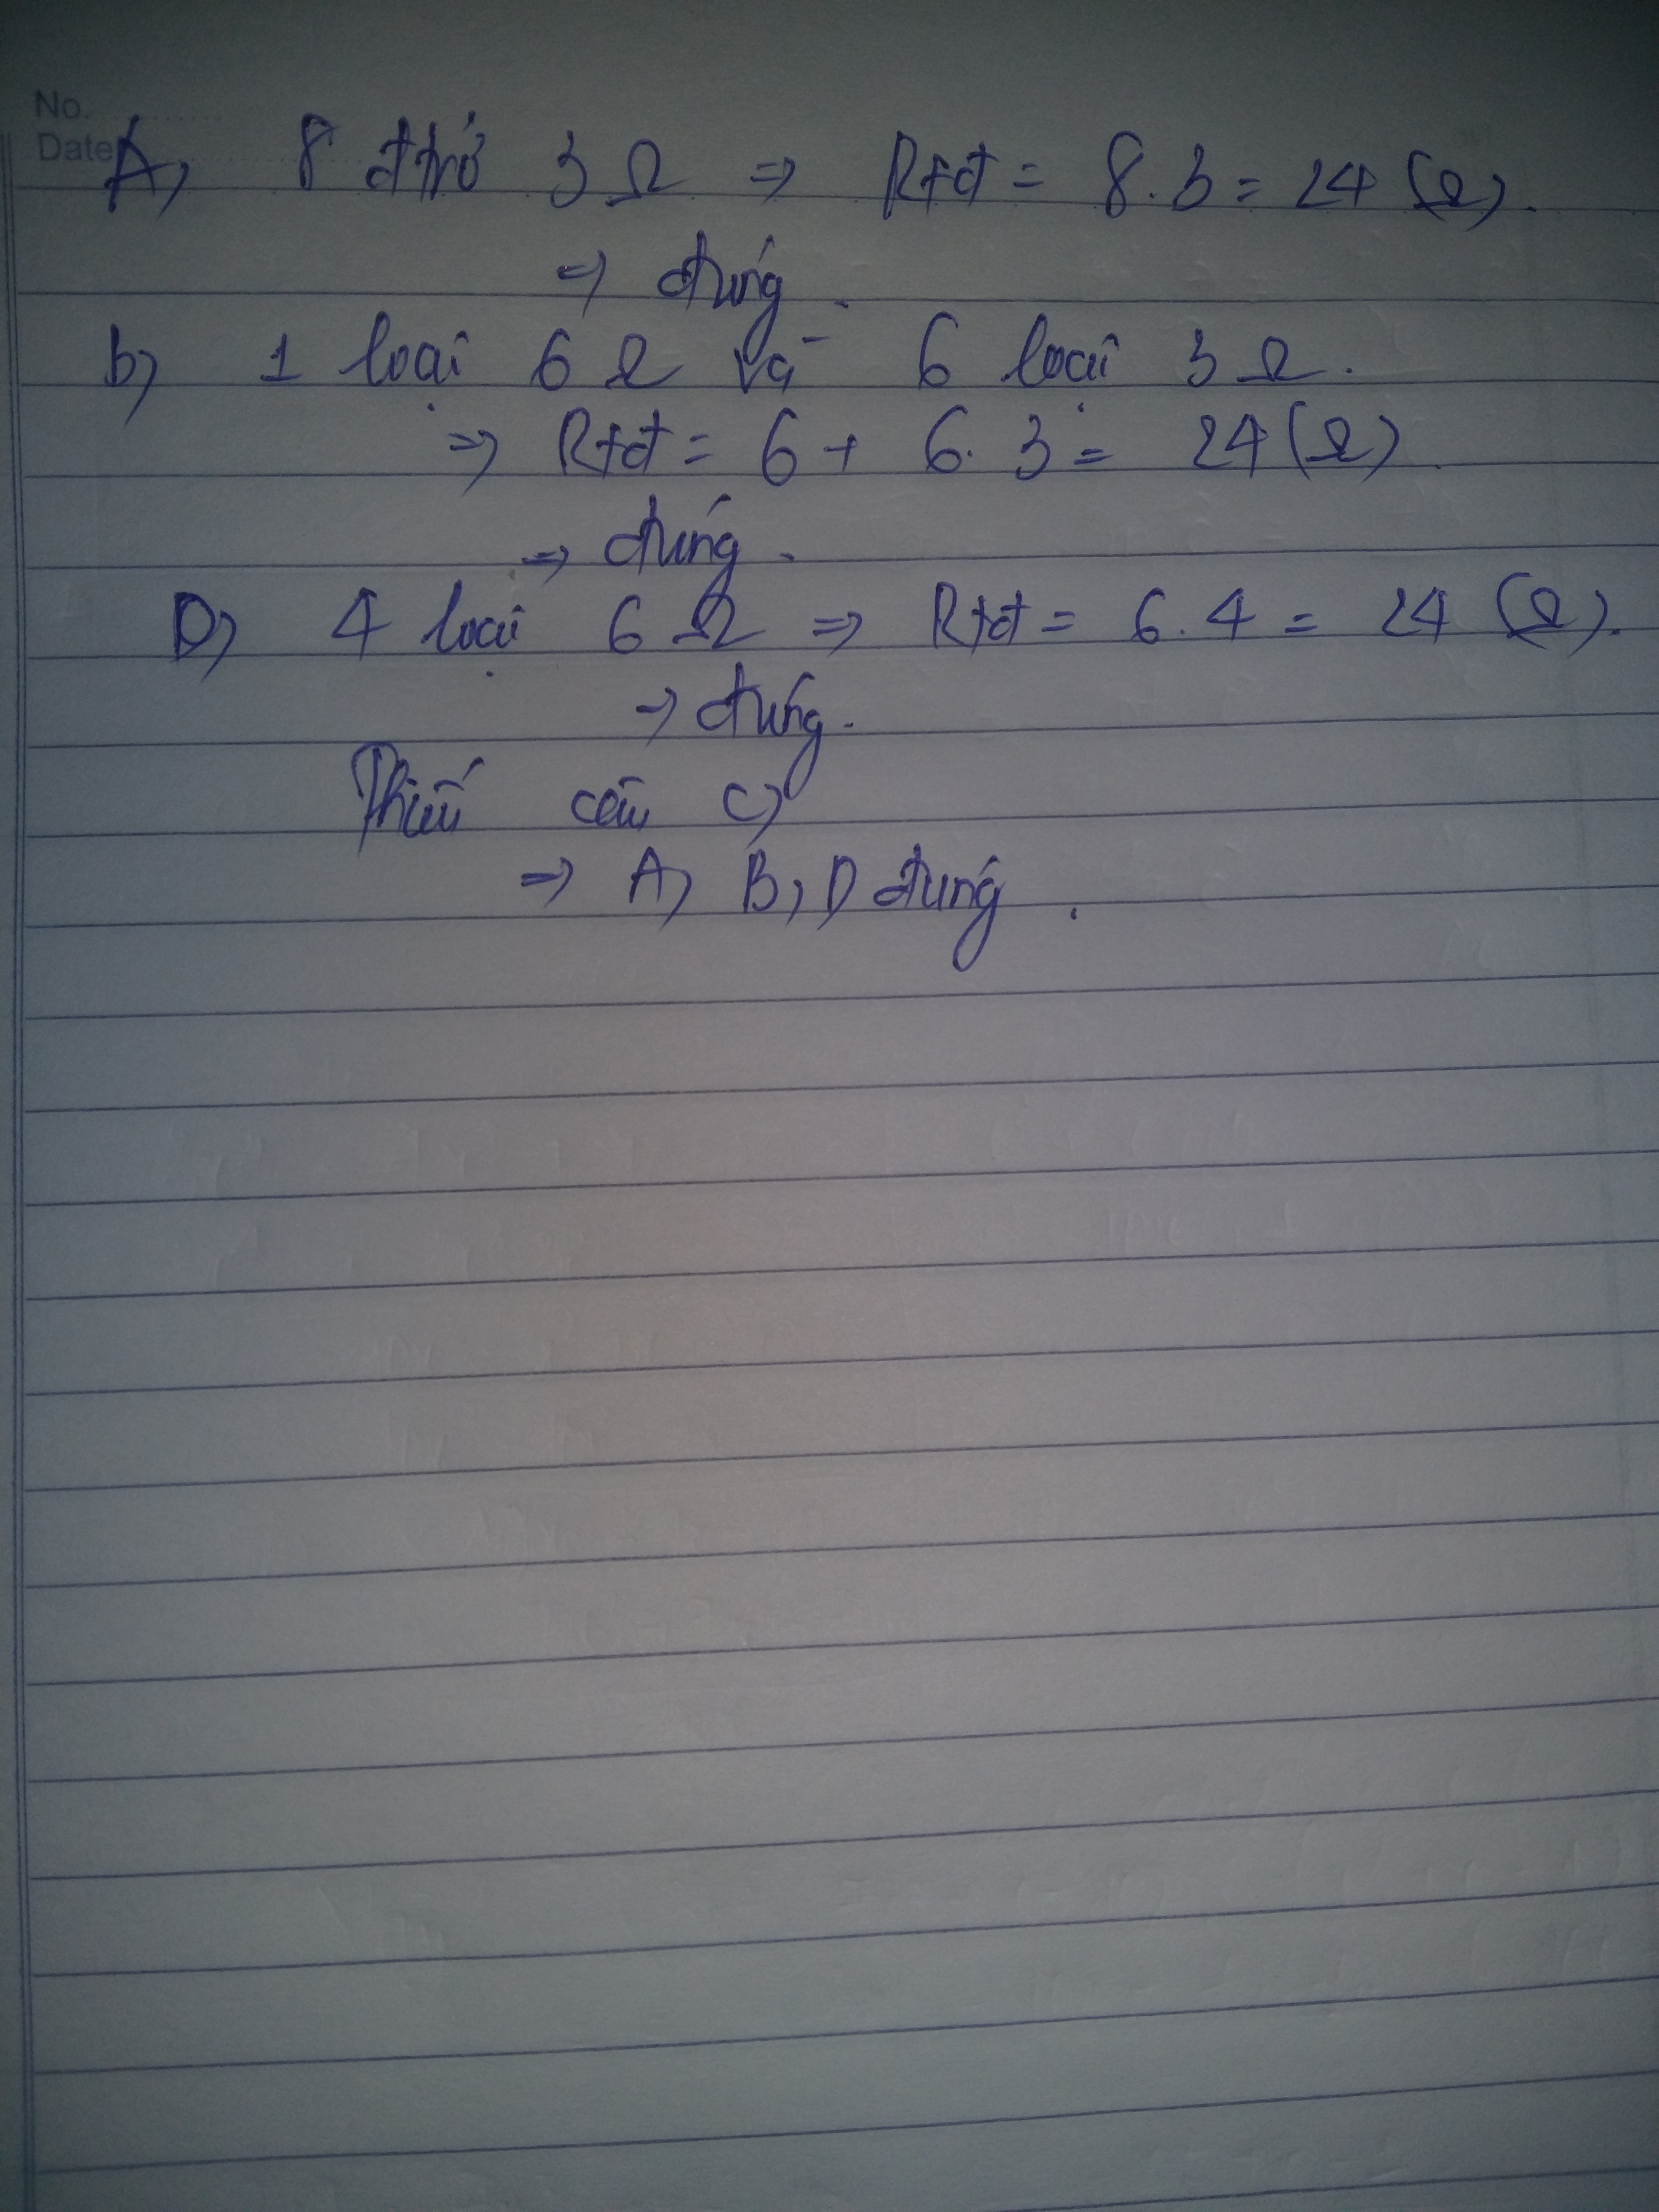 No.
Date
A, 8 đtrở 3 Ω => Rtđ = 8.3 = 24 (Ω).
=> đúng.
b, 1 loại 6 Ω và 6 loại 3 Ω.
=> Rtđ = 6 + 6.3 = 24 (Ω).
=> đúng.
D, 4 loại 6 Ω => Rtđ = 6.4 = 24 (Ω).
=> đúng.
Thiếu câu C)
=> A, B, D đúng.